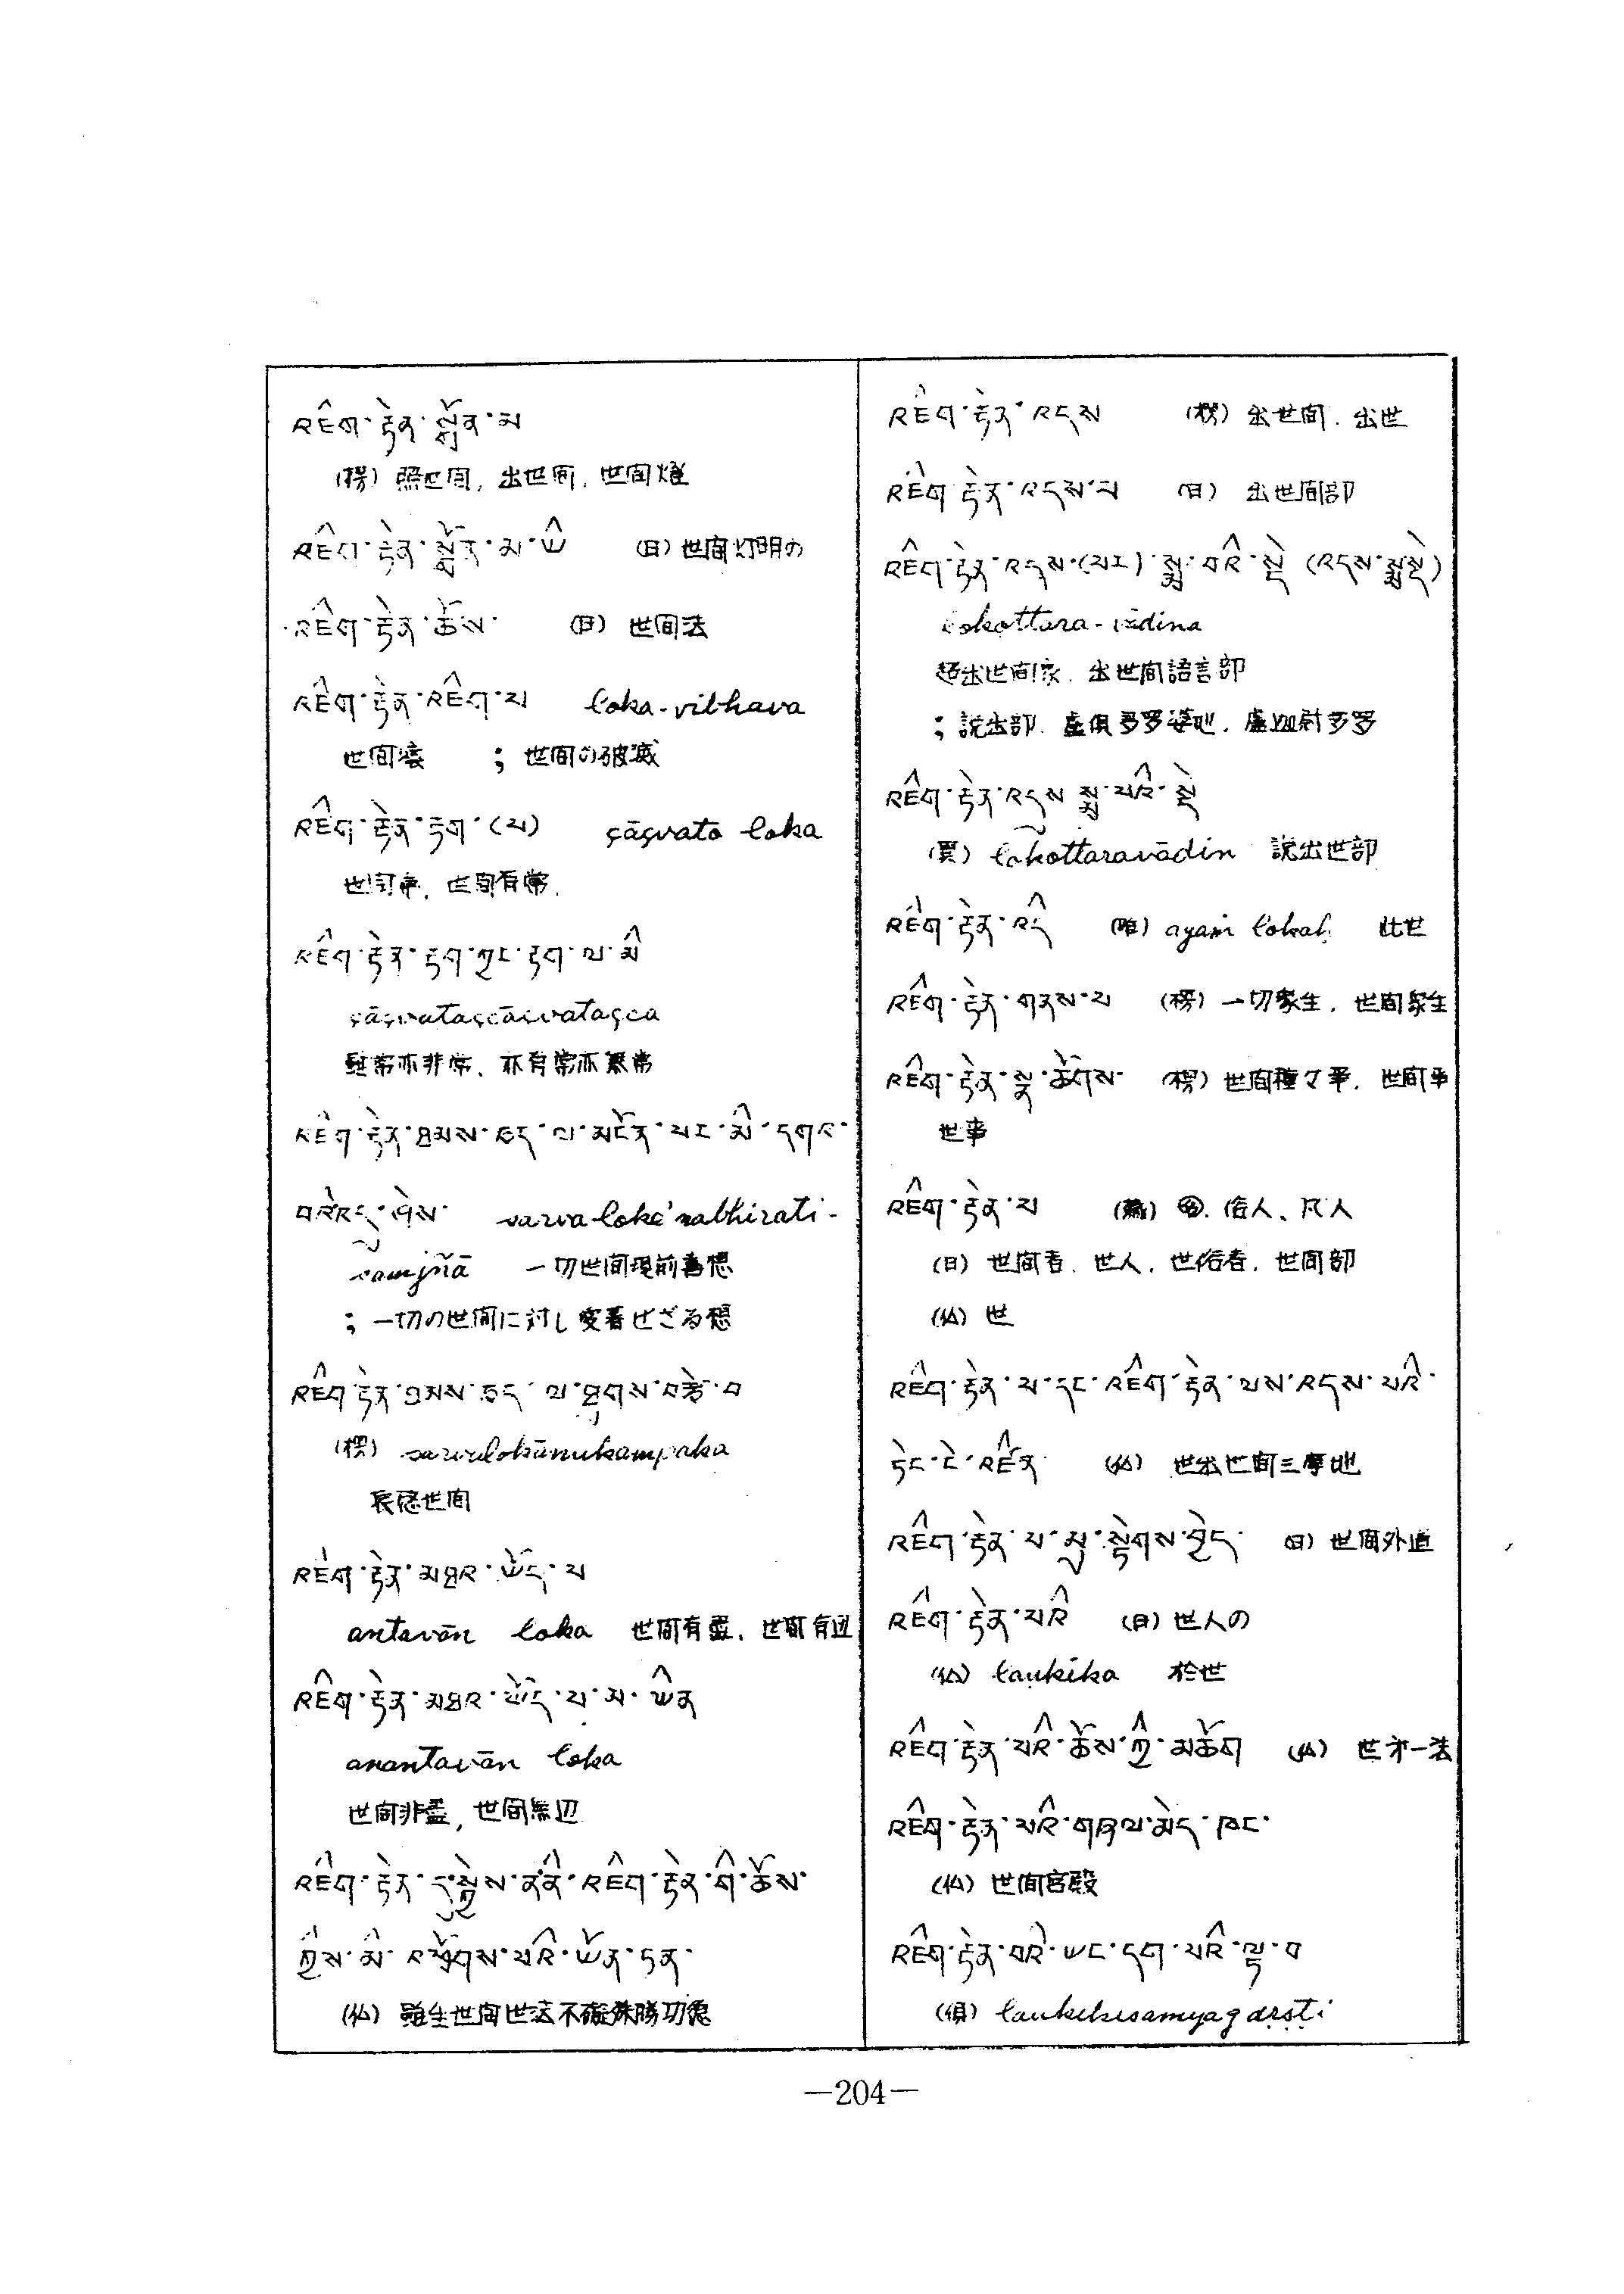 འཇིག་རྟེན་སྒྲོན་མ
(楞) 照世間, 出世間, 世間燈
འཇིག་རྟེན་སྒྲོན་མ་ཡི (日) 世間灯明の
འཇིག་རྟེན་ཆོས་ (日) 世间法
འཇིག་རྟེན་འཇིག་པ loka-vibhava
世間壊 ; 世間の破滅
འཇིག་རྟེན་རྟག་(པ) çāçvato loka
世間常, 世間有常.
འཇིག་རྟེན་རྟག་ཀྱང་རྟག་ལ་མི
çāçvataçcāçvataçca
亦有常亦無常
འཇིག་རྟེན་ཐམས་ཅད་ལ་མངོན་པར་མི་དགར་
བའི་འདུ་ཤེས་ sarva-loke'nabhirati-
samjñā 一切世間現前喜想
; 一切の世間に対し愛着せざる想
འཇིག་རྟེན་ཐམས་ཅད་ལ་ཐུགས་བརྩེ་བ
(楞) sarvalokānukampaka
哀愍世間
འཇིག་རྟེན་མཐའ་ཡོད་པ
antavān loka 世間有盡, 世間有辺
འཇིག་རྟེན་མཐའ་ཡོད་པ་མ་ཡིན
anantavān loka
世間非盡, 世間無辺
འཇིག་རྟེན་དུ་སྐྱེས་ན་ནི་འཇིག་རྟེན་གི་ཆོས་
ཀྱིས་མི་འཕྲོགས་པའི་ཡོན་ཏན་
(仏) 雖生世間世法不礙殊勝功徳
འཇིག་རྟེན་འདས (楞) 出世間, 出世
འཇིག་རྟེན་འདས་པ (日) 出世間部
འཇིག་རྟེན་འདས་(པར)་སྨྲ་བའི་སྡེ (འདས་སྨྲ་སྡེ)
lokottara-vādina
超出世間家, 出世間語言部
; 説出部, 盧俱多罗婆地, 盧迦尉多罗
འཇིག་རྟེན་འདས་སྨྲ་པའི་སྡེ
(異) lokottaravādin 説出世部
འཇིག་རྟེན་འདི (唯) ayaṁ lokaḥ 此世
འཇིག་རྟེན་གནས་པ (楞) 一切衆生, 世間衆生
འཇིག་རྟེན་སྣ་ཚོགས་ (楞) 世間種々事, 世間事
世事
འཇིག་རྟེན་པ (蔵) 俗人、凡人
(日) 世間者, 世人, 世俗者, 世間部
(仏) 世
འཇིག་རྟེན་པ་དང་འཇིག་རྟེན་ལས་འདས་པའི་
ཏིང་ངེ་འཛིན་ (仏) 世出世間三摩地
འཇིག་རྟེན་པ་མུ་སྟེགས་བྱེད་ (日) 世間外道
འཇིག་རྟེན་པའི (日) 世人の
(仏) laukika 於世
འཇིག་རྟེན་པའི་ཆོས་ཀྱི་མཆོག (仏) 世才一法
འཇིག་རྟེན་པའི་གཞལ་མེད་ཁང་
(仏) 世間宮殿
འཇིག་རྟེན་བའི་ཡང་དག་པའི་ལྟ་བ
(倶) laukikīsamyagdṛṣṭi
—204—